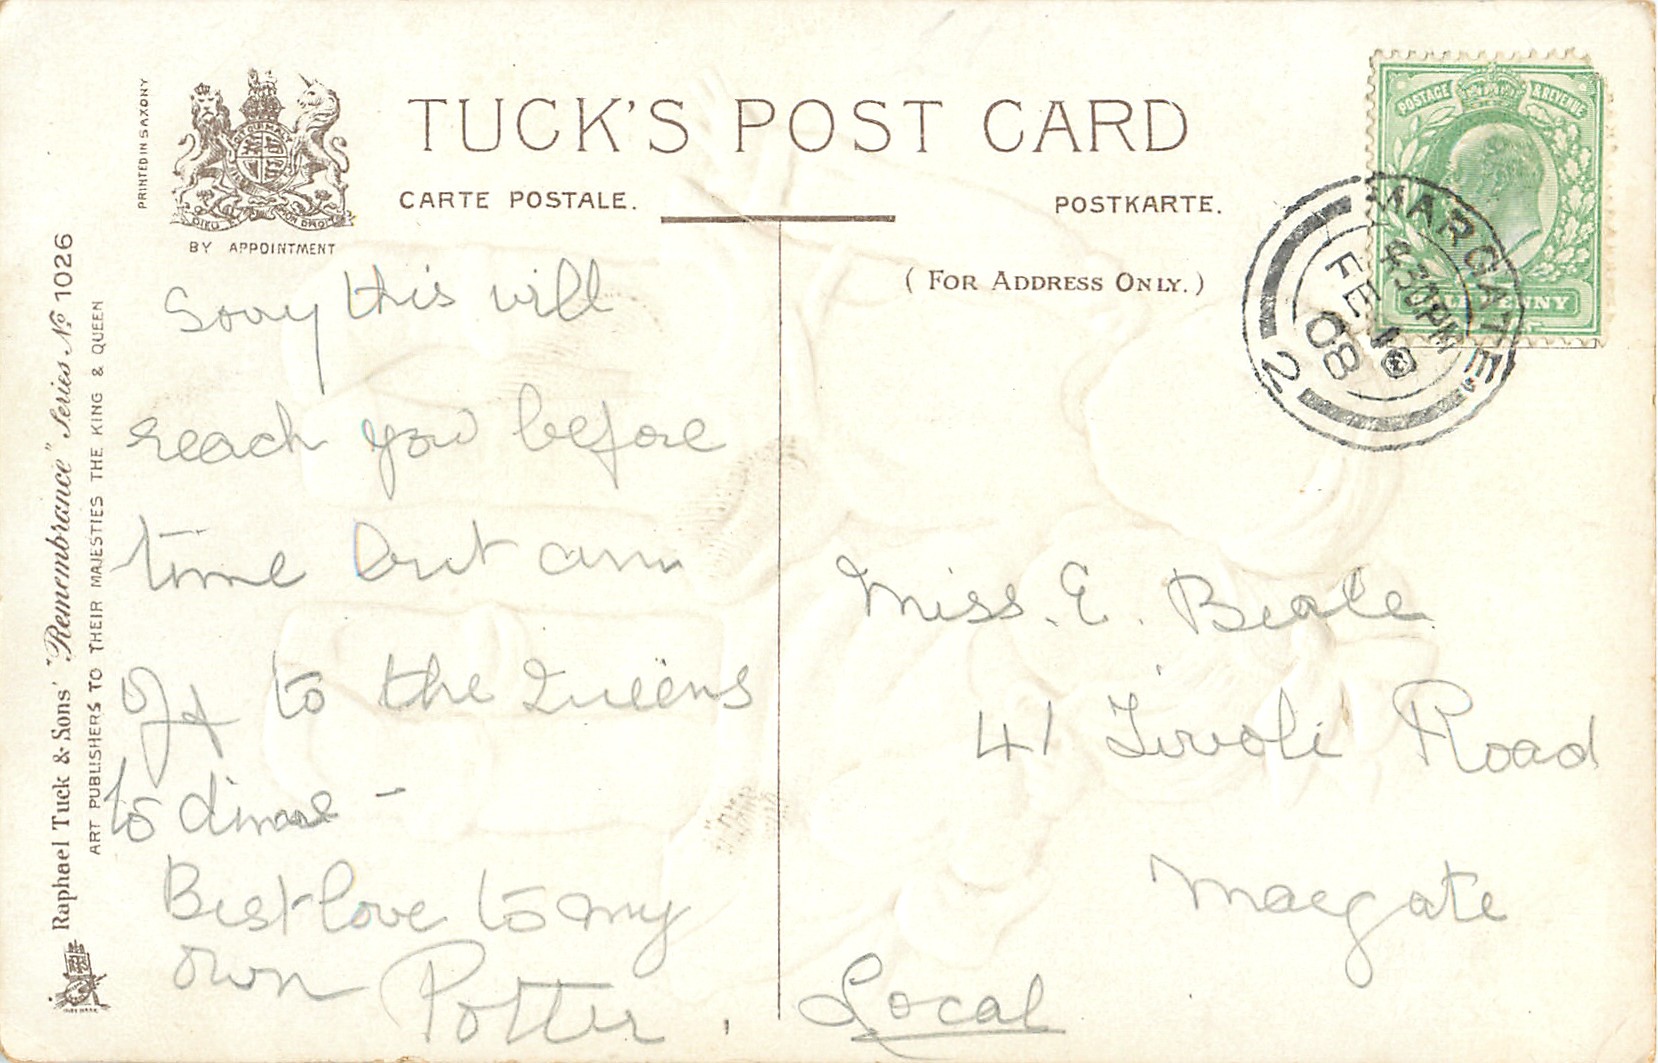 PRINTED IN SAXONY
DIEU ET MON DROIT
BY APPOINTMENT
TUCK'S POST CARD
CARTE POSTALE.
POSTKARTE.
(FOR ADDRESS ONLY.)
POSTAGE & REVENUE
HALFPENNY
MARGATE
4.30 PM
FE
08
2
Raphael Tuck & Sons' "Remembrance" Series No 1026
ART PUBLISHERS TO THEIR MAJESTIES THE KING & QUEEN
Sorry this will
reach you before
time but am
off to the Queens
to dinner -
Best love to my
own Potter.
Miss. E. Beale
41 Tivoli Road
Margate
Local